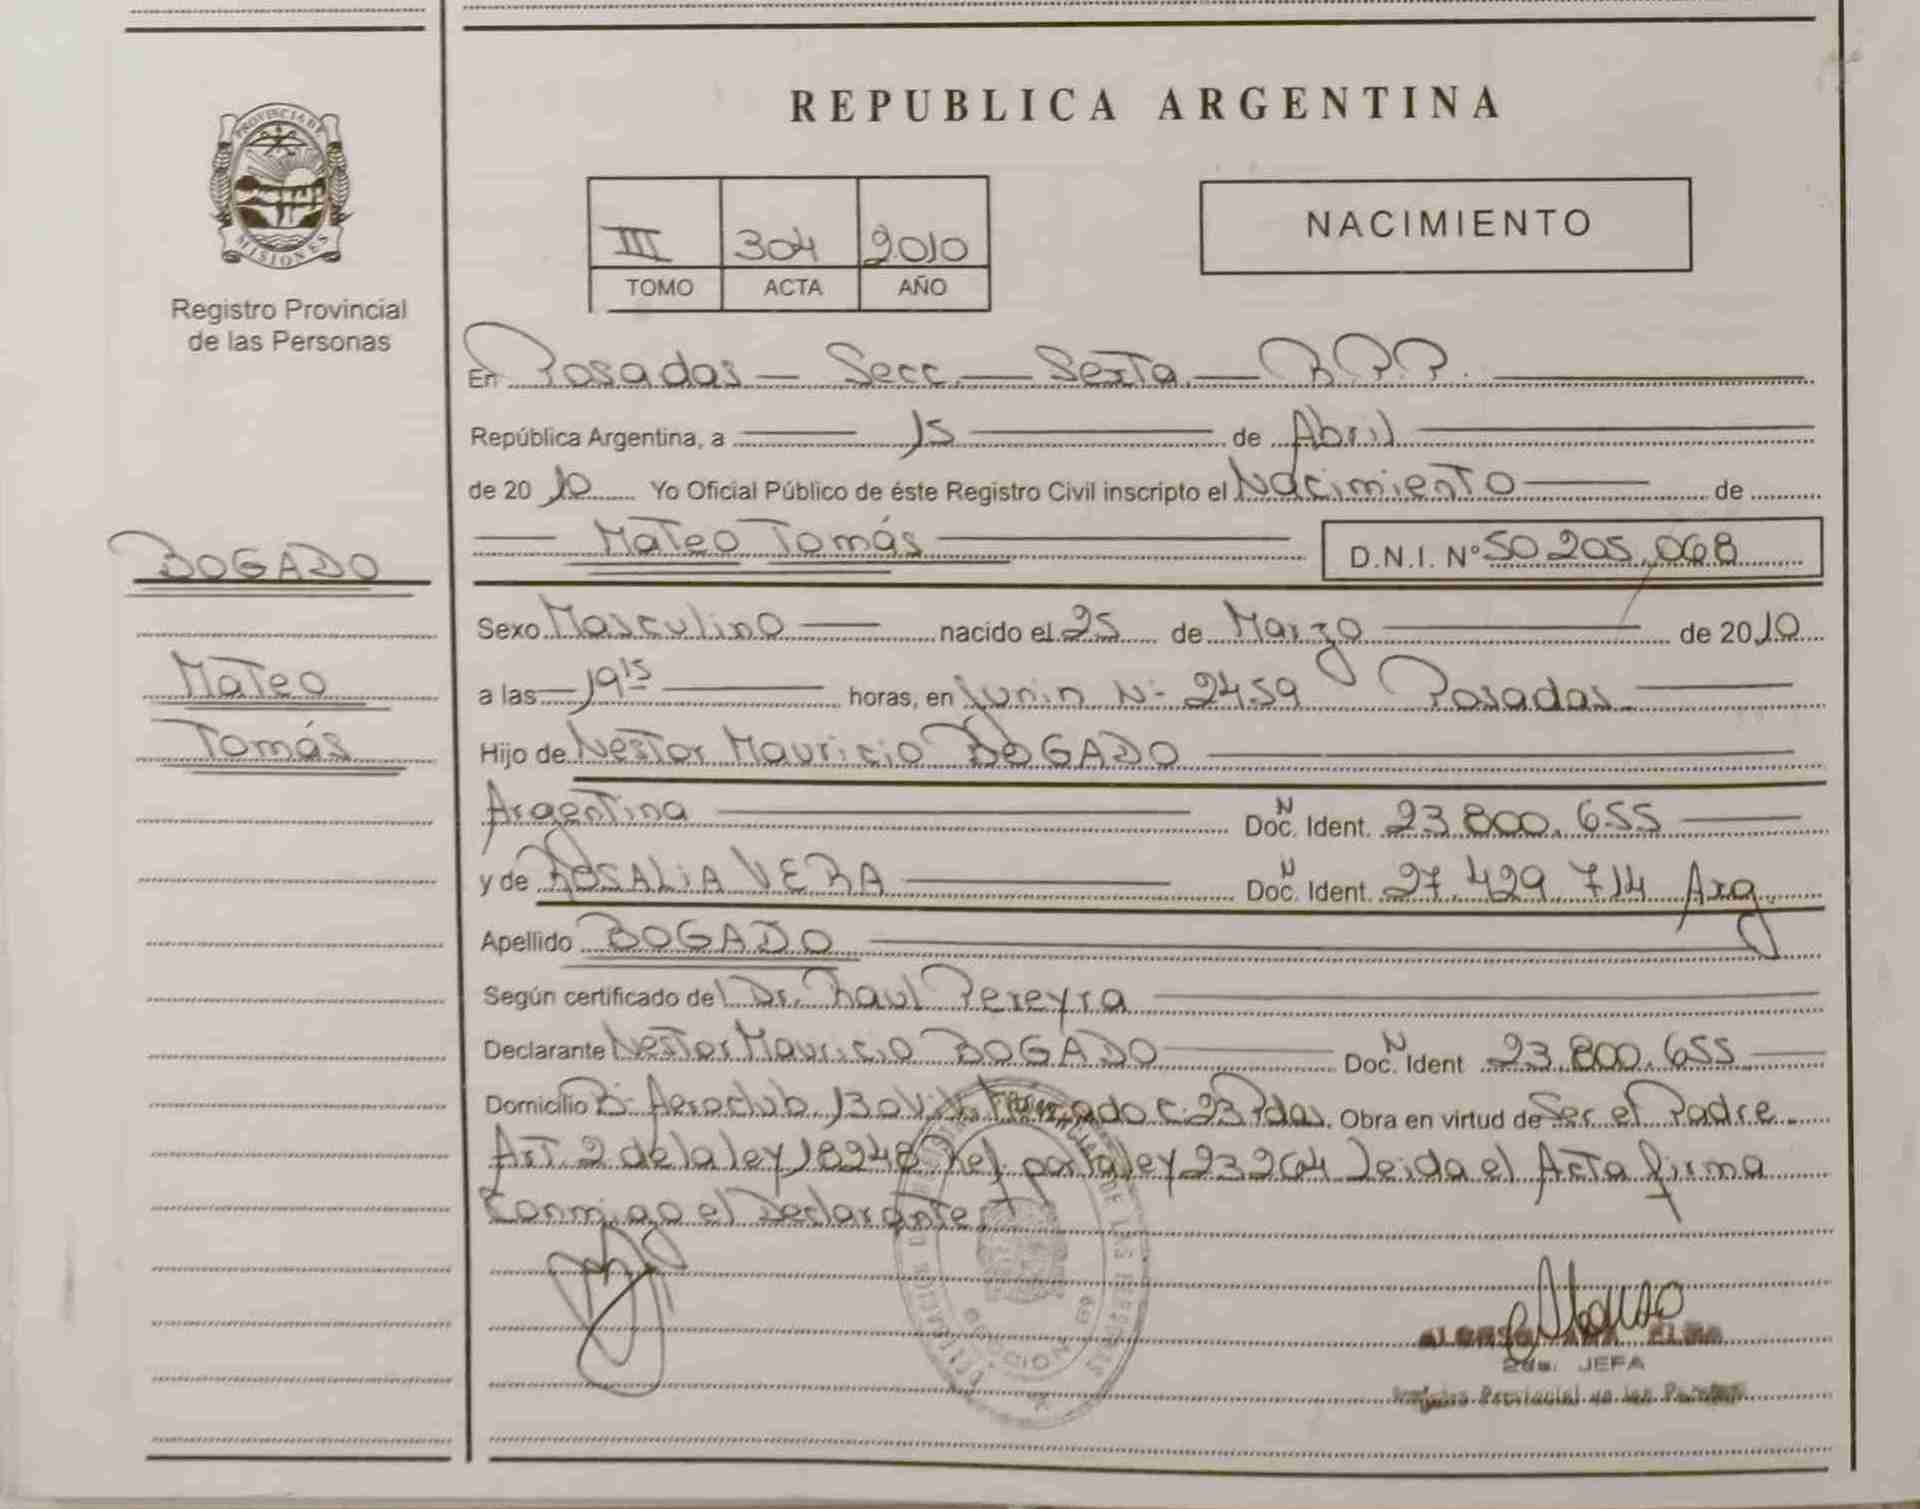 PROVINCIA DE
MISIONES
Registro Provincial
de las Personas
BOGADO
Mateo
Tomás
REPUBLICA ARGENTINA
III 304 2010
TOMO ACTA AÑO
NACIMIENTO
En Posadas - Secc. - Sexta. - R.P.P.
República Argentina, a 15 de Abril
de 2010 Yo Oficial Público de éste Registro Civil inscripto el Nacimiento de
Mateo Tomás D.N.I. Nº 50.205.068
Sexo Masculino nacido el 25 de Marzo de 2010
a las 19 15 horas, en Junin Nº 2459 Posadas.
Hijo de Nestor Mauricio BOGADO
Argentina Doc. N Ident. 23.800.655
y de ROSALIA VERA Doc. N Ident. 27.429.714 Arg.
Apellido BOGADO
Según certificado del Dr. Raul Pereyra
Declarante Nestor Mauricio BOGADO Doc. N Ident 23.800.655
Domicilio Bº Aeroclub 130 C. 23 Pdas. Obra en virtud de Ser el Padre
Art. 2 de la ley 18248 Ref. por la ley 23264 Leida el Acta firma
Conmigo el Declarante
2da. JEFA
Registro Provincial de las Personas